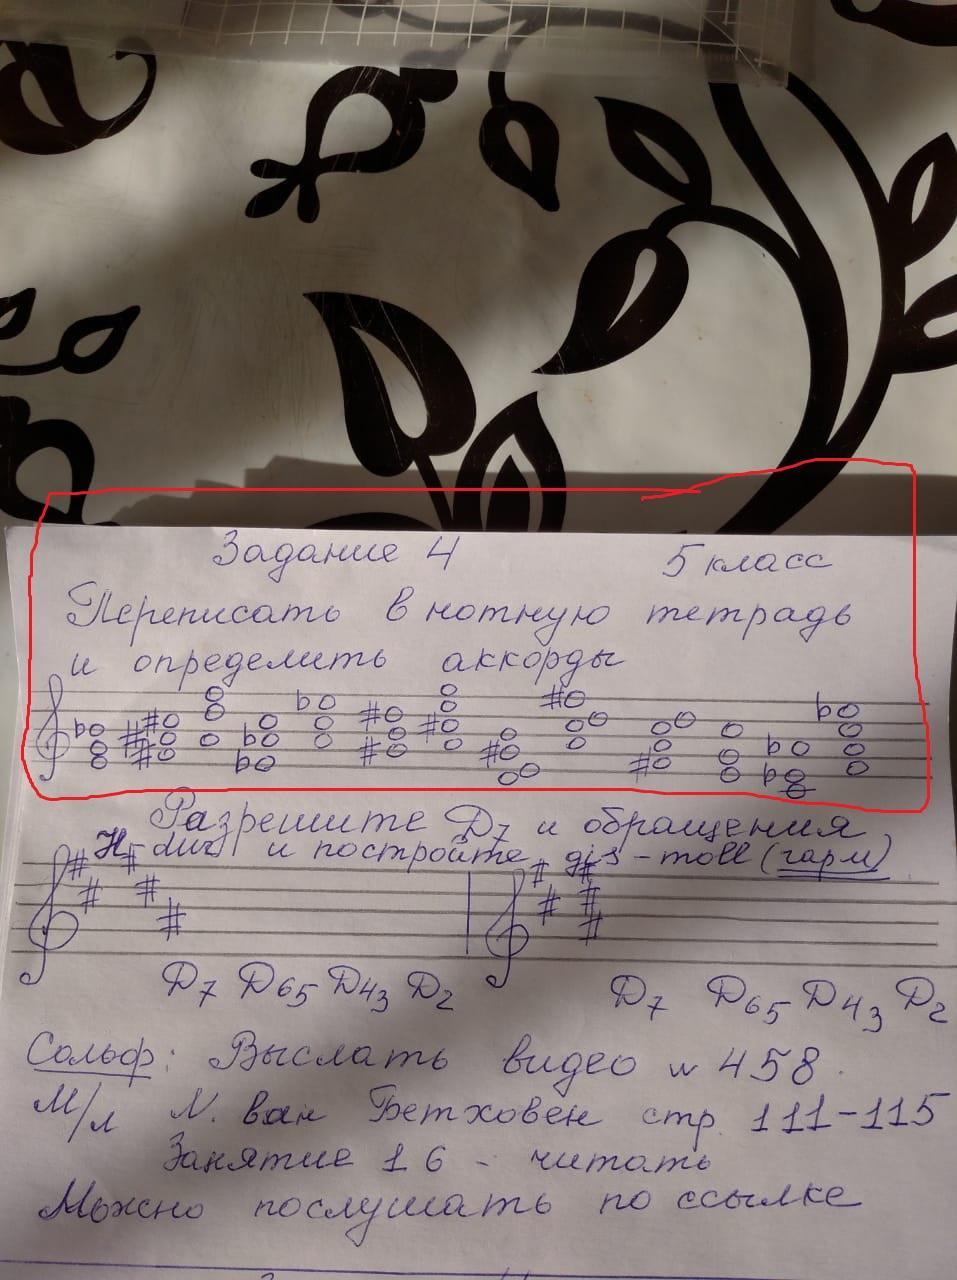 Задание 4 5 класс
Переписать в нотную тетрадь
и определить аккорды
Разрешите D7 и обращения
H-dur и постройте gis-moll (гарм)
D7 D65 D43 D2 D7 D65 D43 D2
Сольф: Выслать видео № 458.
М/л Л. ван Бетховен стр. 111-115
Занятие 16 - читать
Можно послушать по ссылке